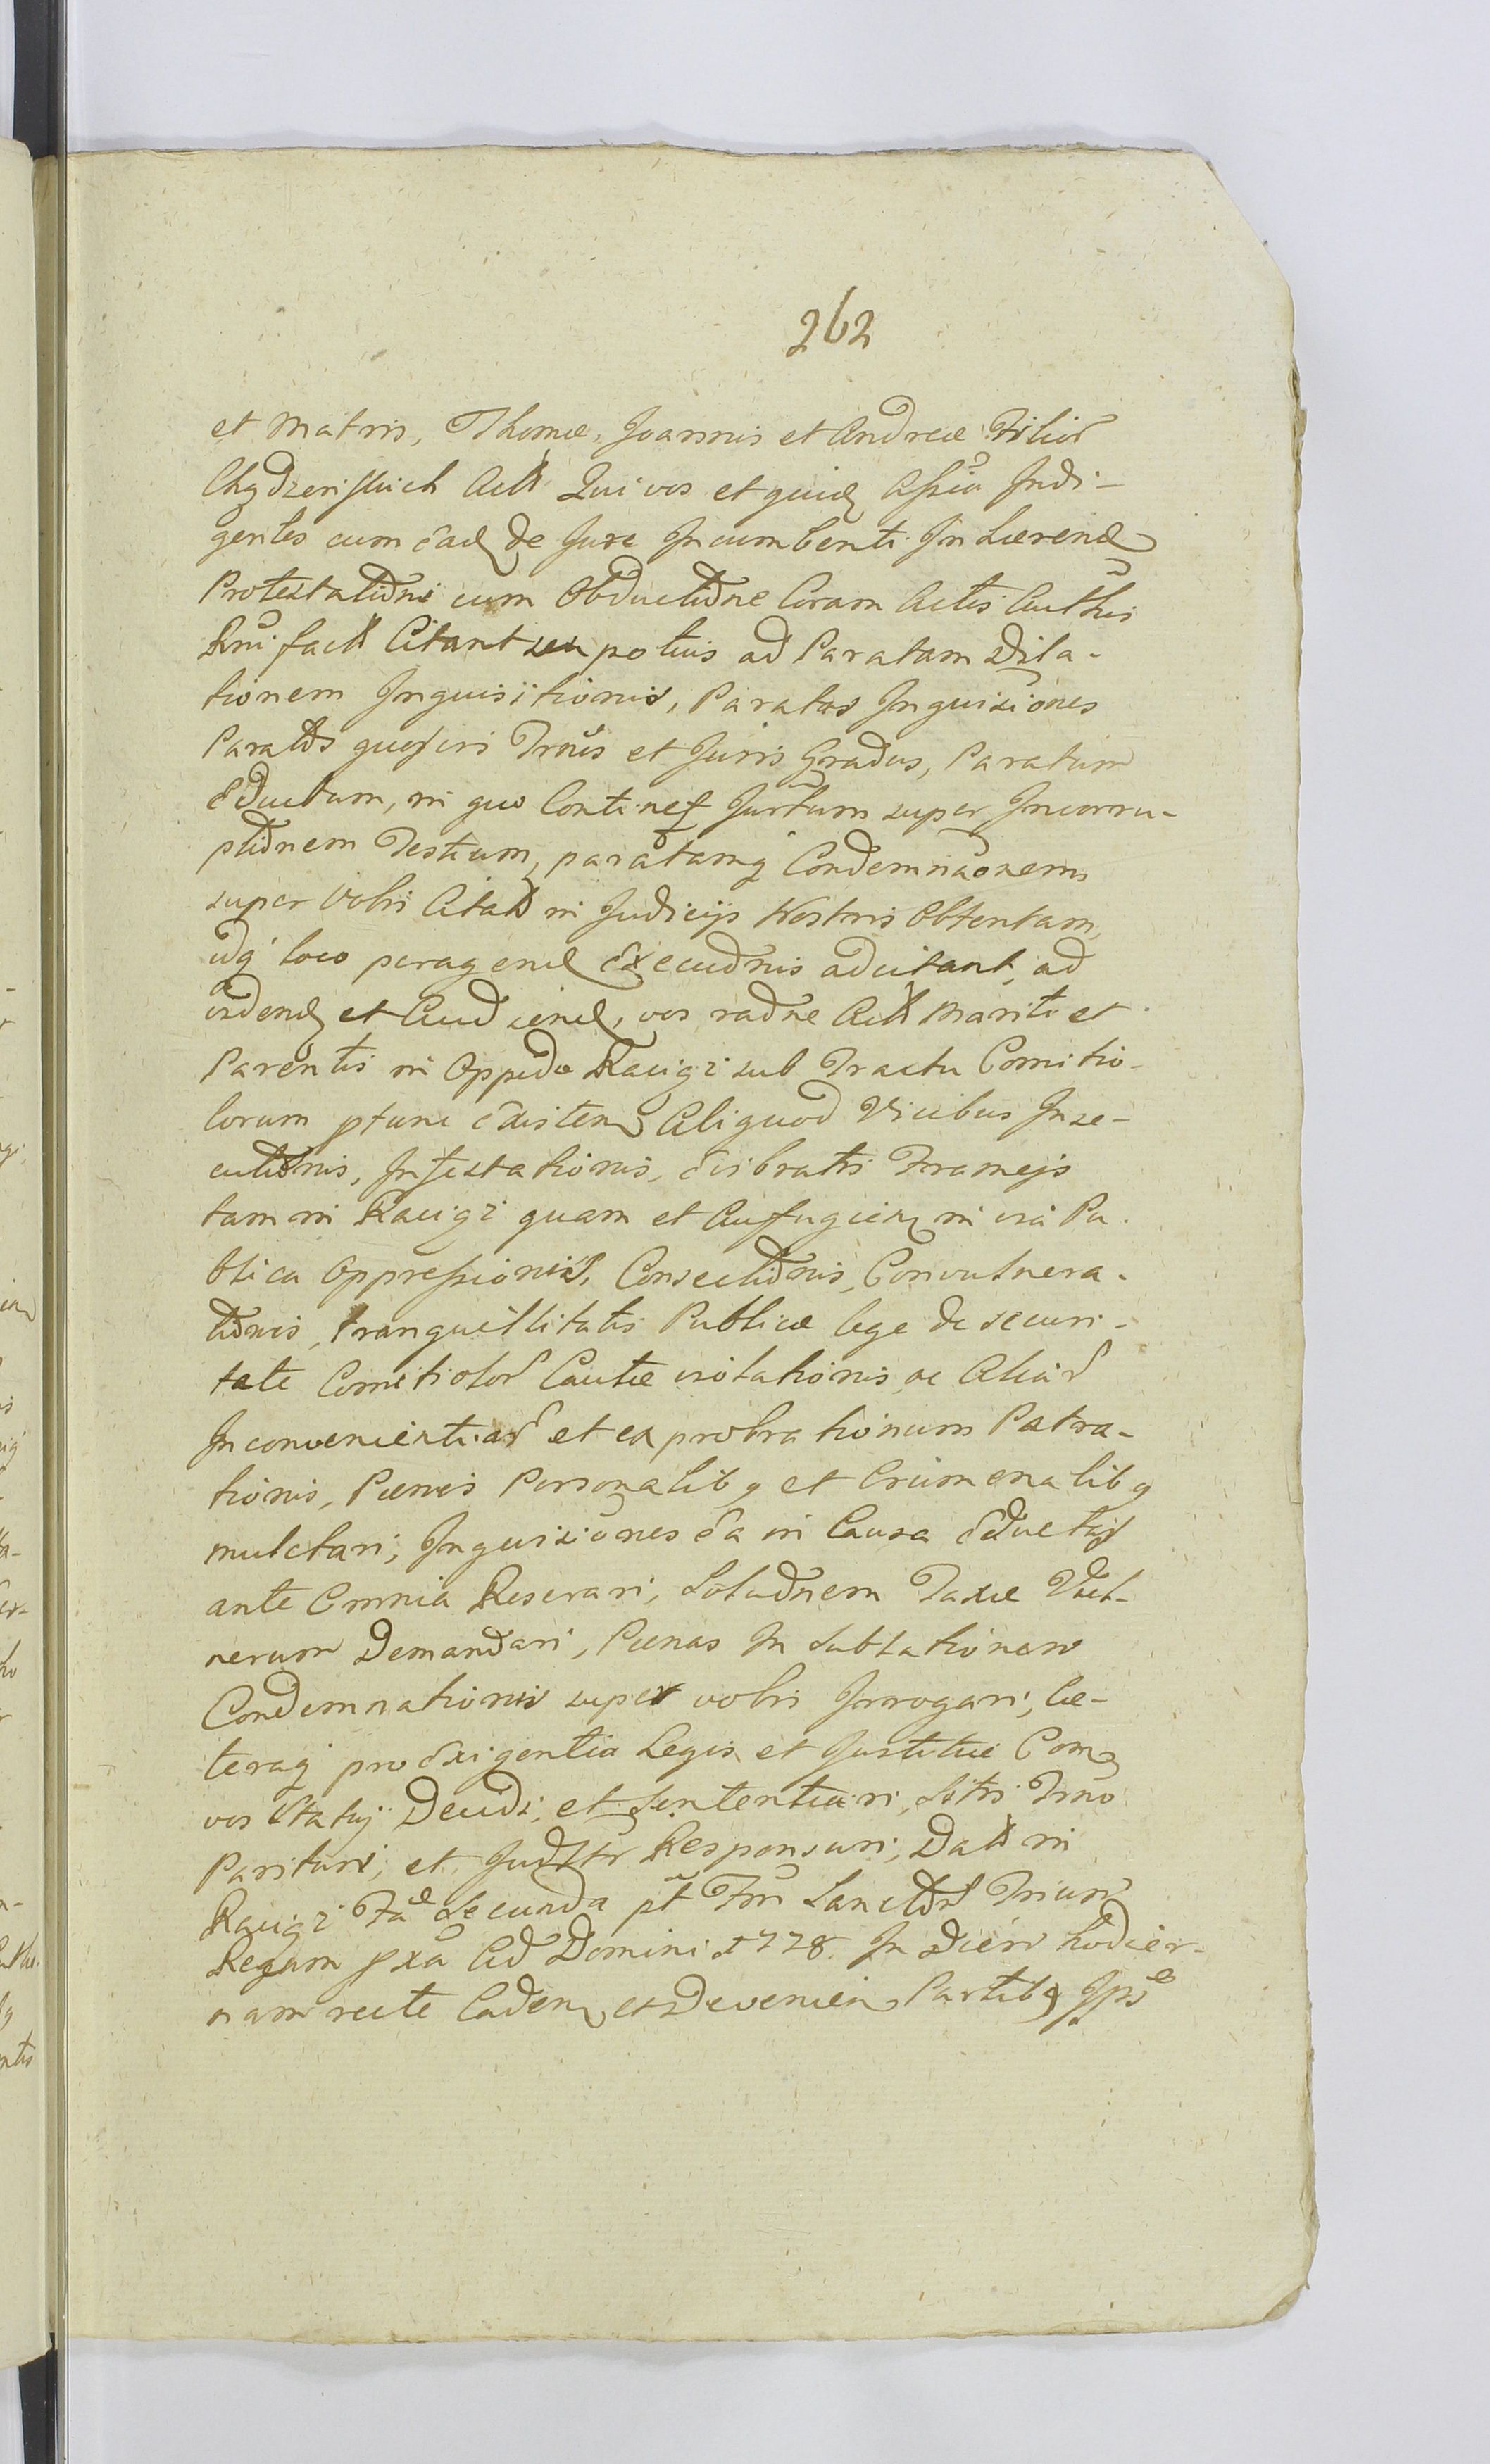 262
et Matris, Thomæ, Joannis et Andreæ Filior
Chądzeńskich Act Qui vos et quid Assia Indi-
gentes cum ead de Jure Incumbenti Inhærend
Protestatiõni cum Obductiõne Coram Actis Authis
Rñi fact Citant seu potius ad Paratam Dila-
tionem Inquisitionis, Paratas Inquisiõnes
Paratos quosvis Trñis et Juris Gradus, Paratum
Eductum, in quo Continet Jurtum super Incorru-
ptiõnem Testium, paratamq Condemnaõnem
super Vobis Citat in Judicijs Nostris Obtentam,
idq loco peragend Execuõnis adcitant, ad
vidend et Audiend, vos raõne Act Mariti et
Parentis in Oppido Raciąż sub Tractu Comitio-
lorum ptunc Existen Aliquod Vicibus Inse-
cutiõnis, Infestationis, Evibratis Frameis
tam in Raciąż quam et Aufugien in via Pu-
blica Oppressionis, Consectiõnis, Convulnera-
tiõnis, tranquillitatis Publicæ lege de securi-
tate Comitiolor Cautæ violationis ac Aliar
Inconvenientiar et exprobrationum Patra-
tionis, Pænis Personalibq et Criminalibq
mulctari, Inquisiõnes Ea in Causa Eductas
ante Omnia Reserari, Solutiõnem Taxæ Vul-
nerum Demandari, Pænas In Sublationem
Condemnationis super vobis Irrogari, Cæ-
teraq pro Exigentia Legis et Justitiæ Com
vos Statuj Decidi, et Sententiari, Sitis Trño
Parituri, et Judltr Responsuri, Dat in
Raciąż Fã Secunda pt Fm Sanctor Trium
Regum pxa Ad Domini 1778. In Diem hodier-
nam recte Caden et Devenien Partibq Ipis